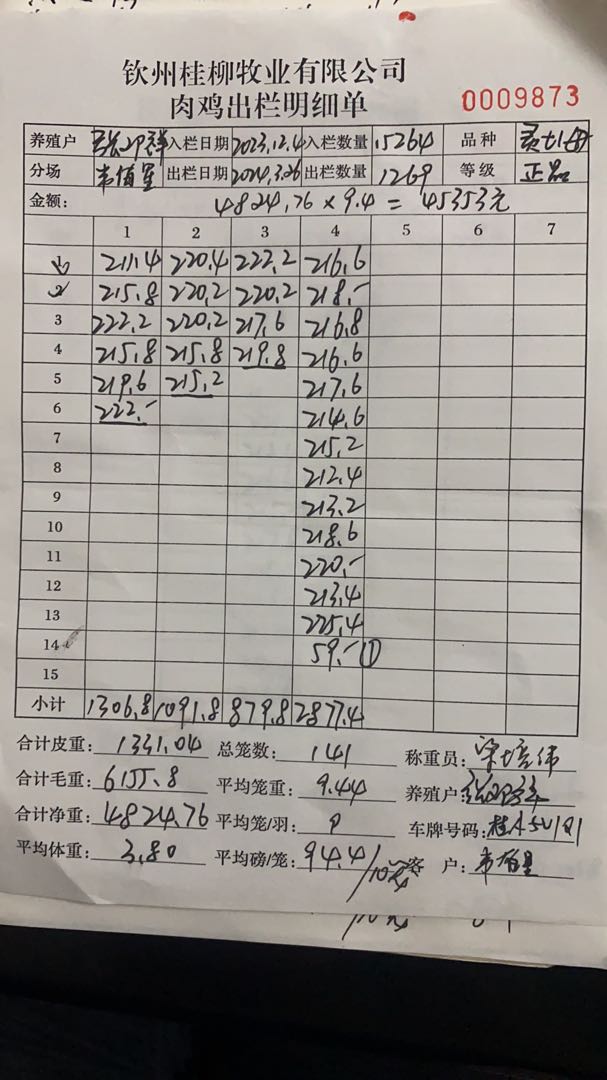 钦州桂柳牧业有限公司
肉鸡出栏明细单 0009873
养殖户 入栏日期 2023.12.4 入栏数量 15264 品种
分场 韦佰星 出栏日期 2024.3.26 出栏数量 1269 等级 正品
金额: 4824.76 × 9.4 = 45353元
1 2 3 4 5 6 7
211.4 220.4 222.2 216.6
215.8 220.2 220.2 218.-
3 222.2 220.2 217.6 216.8
4 215.8 215.8 219.8 216.6
5 219.6 215.2 217.6
6 222.- 214.6
7 215.2
8 212.4
9 213.2
10 218.6
11 220.-
12 213.4
13 225.4
14 59.- ①
15
小计 1306.8 1091.8 879.8 2877.4
合计皮重: 1331.04 总笼数: 141 称重员:
合计毛重: 6155.8 平均笼重: 9.44 养殖户:
合计净重: 4824.76 平均笼/羽: 9 车牌号码:
平均体重: 3.80 平均磅/笼: 94.4/10笼 客户: 韦佰星